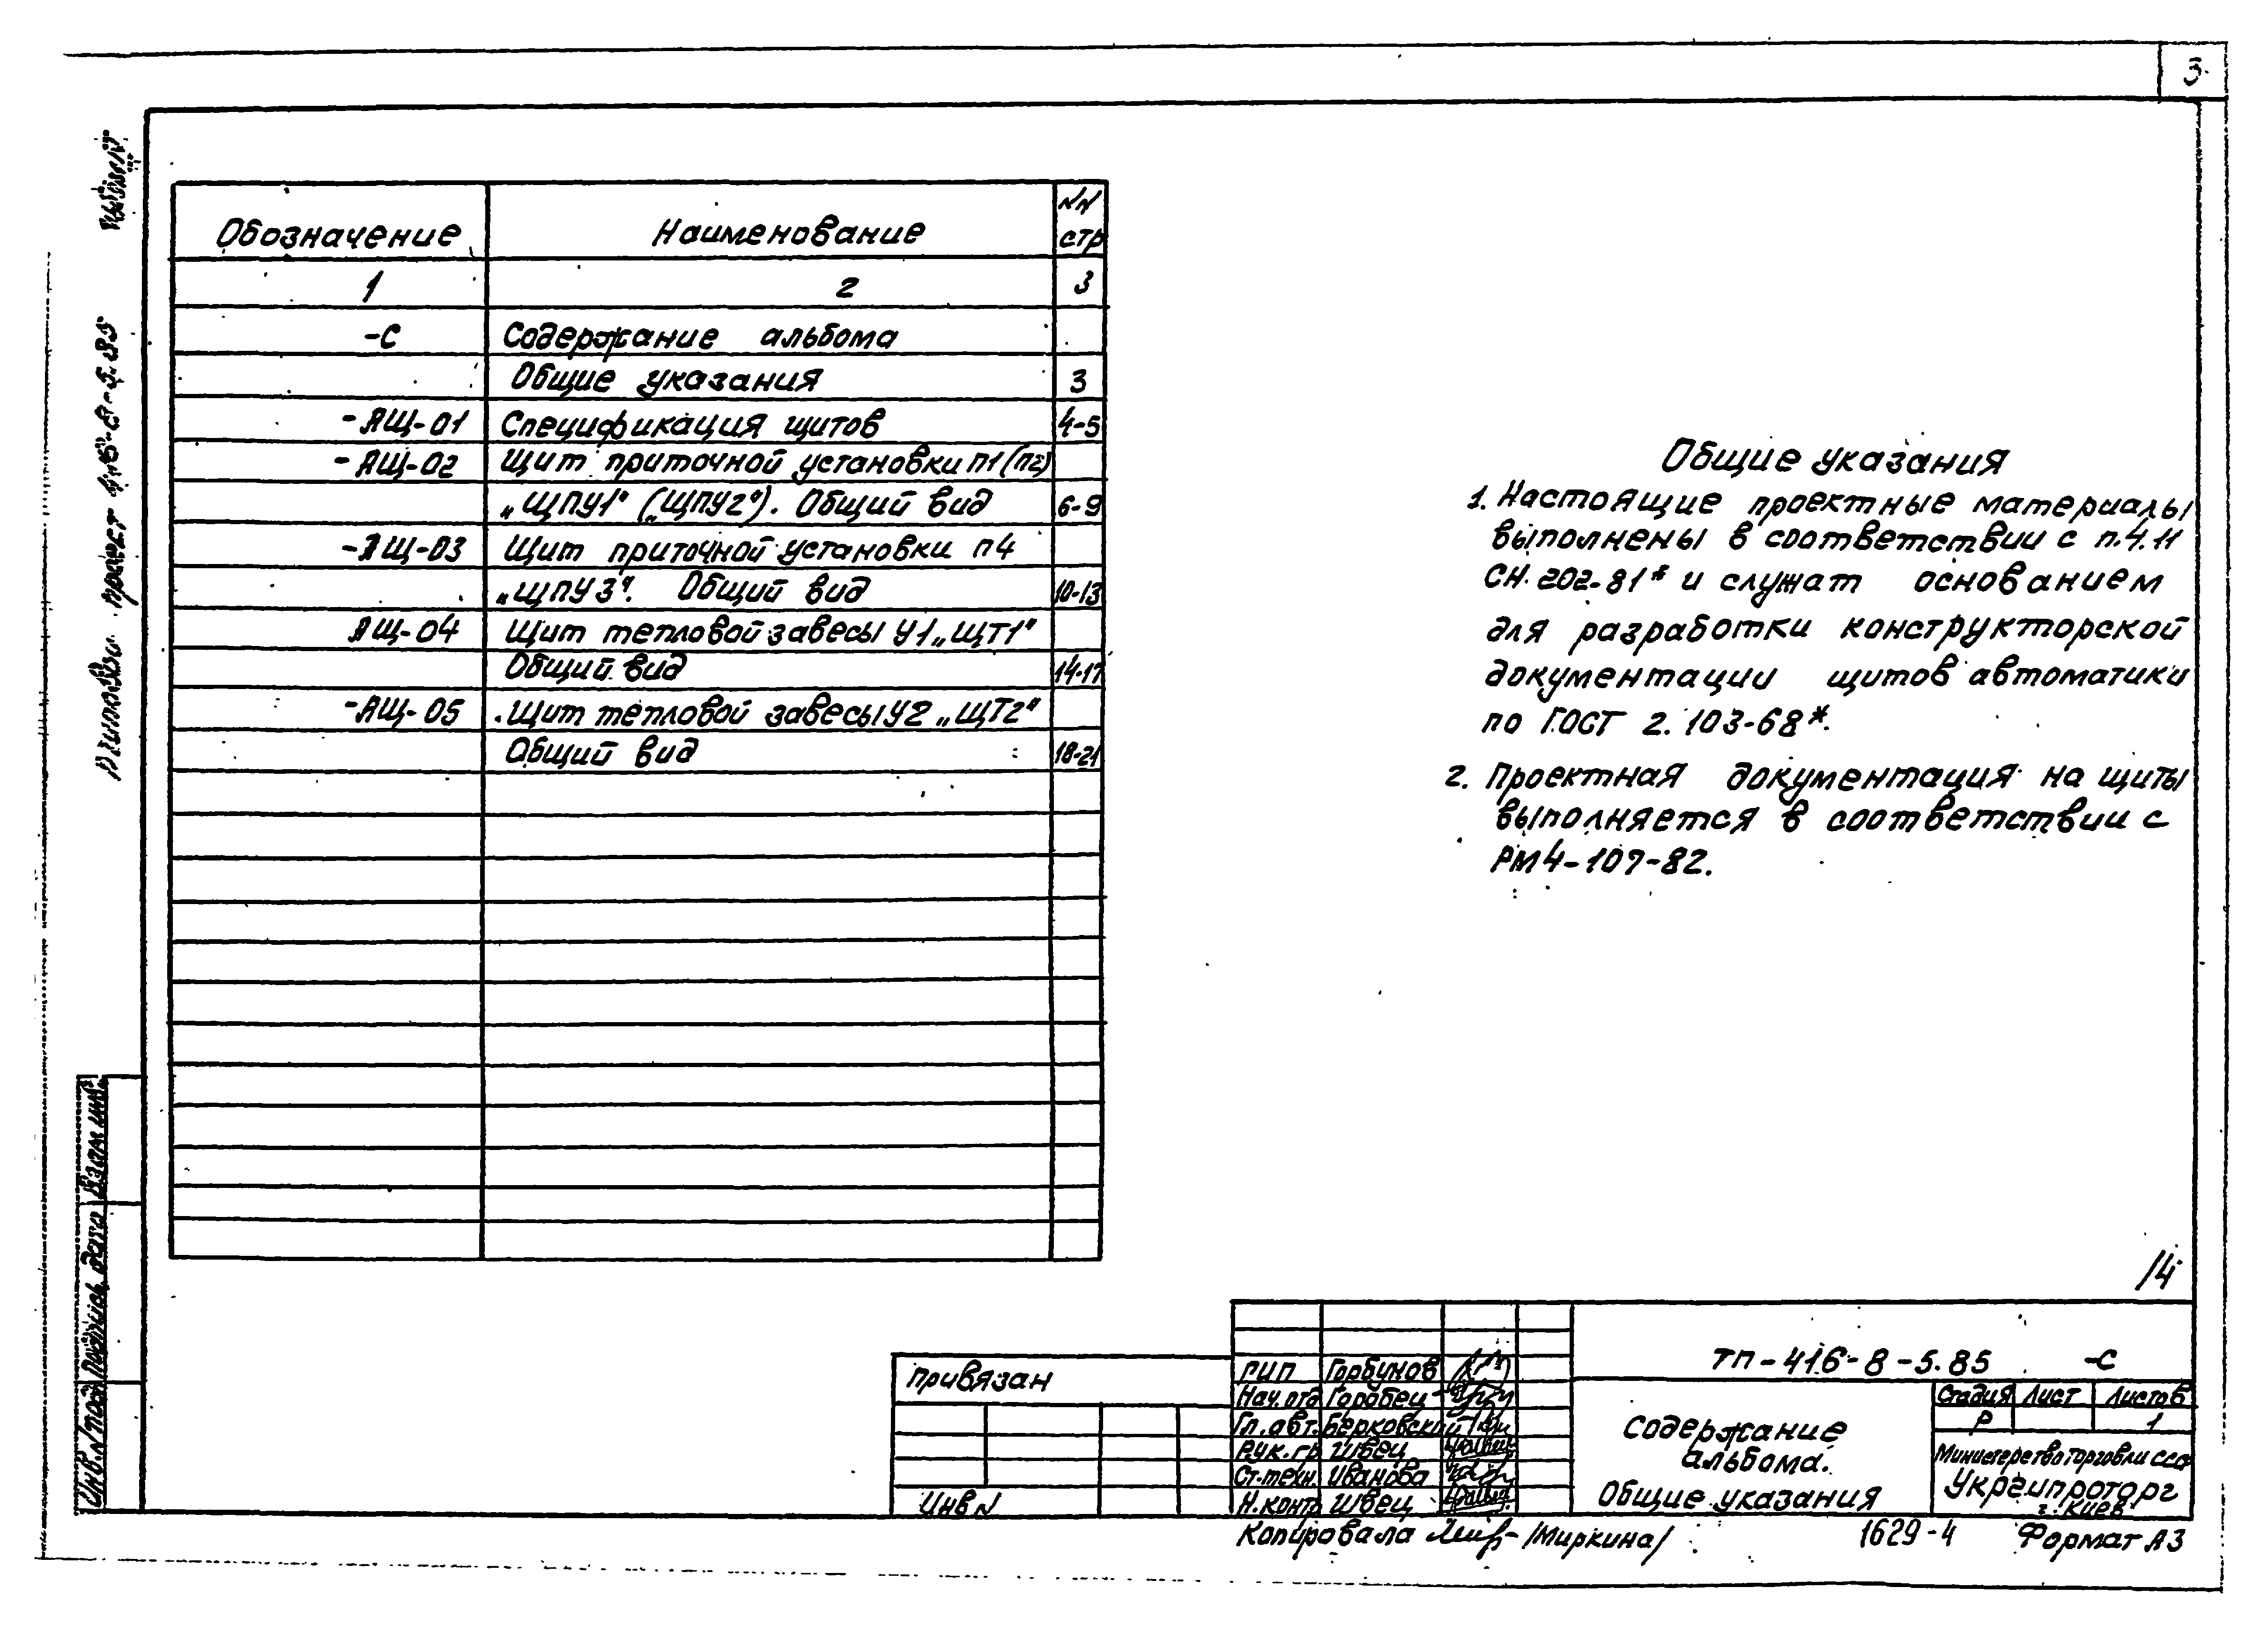 3
Обозначение Наименование NN стр
1 2 3
-С Содержание альбома
Общие указания 3
-АЩ-01 Спецификация щитов 4-5
-АЩ-02 Щит приточной установки П1(П2)
„ЩПУ1“ („ЩПУ2“). Общий вид 6-9
-АЩ-03 Щит приточной установки П4
„ЩПУ3“. Общий вид 10-13
АЩ-04 Щит тепловой завесы У1 „ЩТ1“
Общий вид 14-17
-АЩ-05 Щит тепловой завесы У2 „ЩТ2“
Общий вид 18-21
Общие указания
1. Настоящие проектные материалы
выполнены в соответствии с п.4.11
СН.202-81* и служат основанием
для разработки конструкторской
документации щитов автоматики
по ГОСТ 2.103-68*.
2. Проектная документация на щиты
выполняется в соответствии с
РМ4-107-82.
14
Типовой проект 416-8-5.85 Альбом
Инв.N подл Подпись дата Взам инв.
Привязан
Инв N
ГИП Горбунов
Нач.отд Горобец
Гл.авт. Берковский
Рук.гр Швец
Ст.техн. Иванова
Н.контр Швец
ТП-416-8-5.85 -С
Содержание
альбома.
Общие указания
Стадия Лист Листов
Р 1
Министерство торговли ССР
Укргипроторг
г. Киев
Копировала /Миркина/ 1629-4 Формат А3